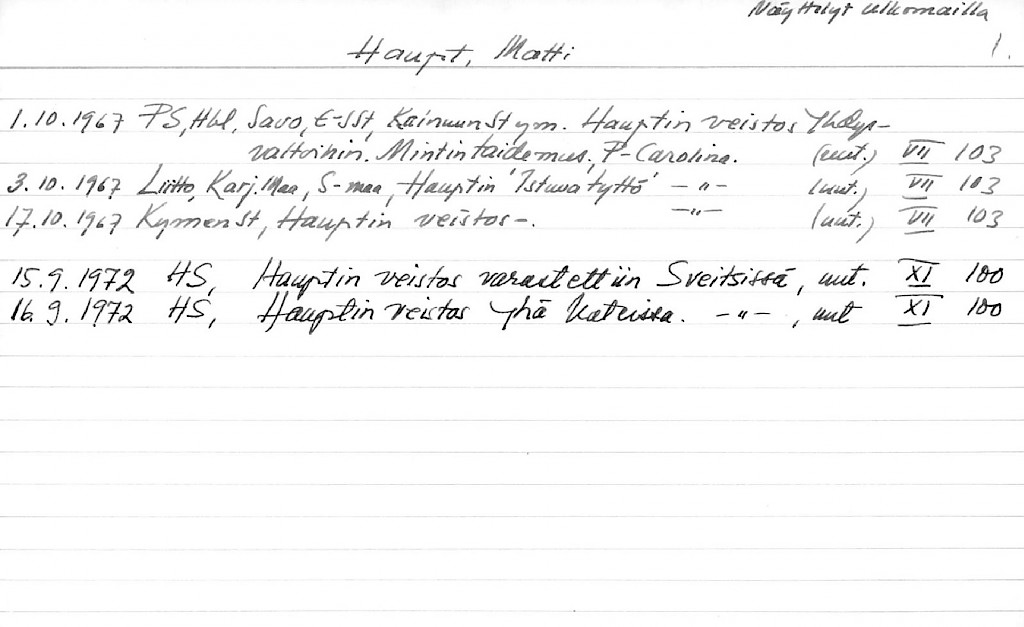 Näyttelyt ulkomailla
Haupt, Matti 1.
1.10.1967 PS, Hbl, Savo, E-SSt, Kainuun St ym. Hauptin veistos Yhdys-
valtoihin. Mintin taidemus, P-Carolina. (uut.) VII 103
3.10.1967 Liitto, Karj. Maa, S-maa, Hauptin 'Istuva tyttö' -"- (uut.) VII 103
17.10.1967 Kymen St, Hauptin veistos -. -"- (uut.) VII 103
15.9.1972 HS, Hauptin veistos varastettiin Sveitsissä, uut. XI 100
16.9.1972 HS, Hauptin veistos yhä kateissa. -"-, uut XI 100